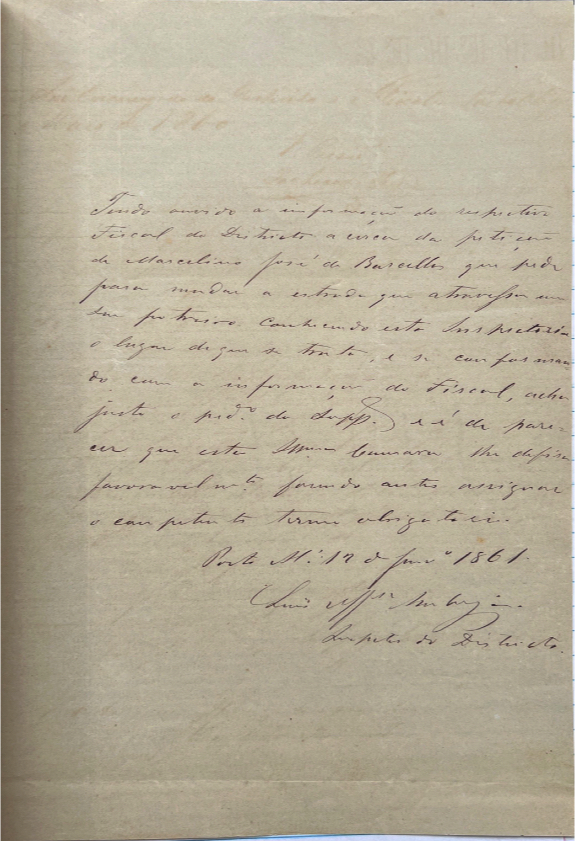 Tendo ouvido a informação do respectivo
Fiscal do Districto a cêrca da petição
de Marcelino José de Barcellos que pede
para mudar a estrada que atravessa um
seu potreiro. Conhecendo esta Inspectoria
o lugar de que se trata, e se conforman
do com a informação do Fiscal, acho
justo o ped.º do Supp.e e é de pare-
cer que esta Illma Camara lhe defira
favoravelm.te fazendo antes assignar
o competente termo obrigatorio.
Porto Al.e 12 de Janr.º 1861.
Luis
Inspetor do Districto.